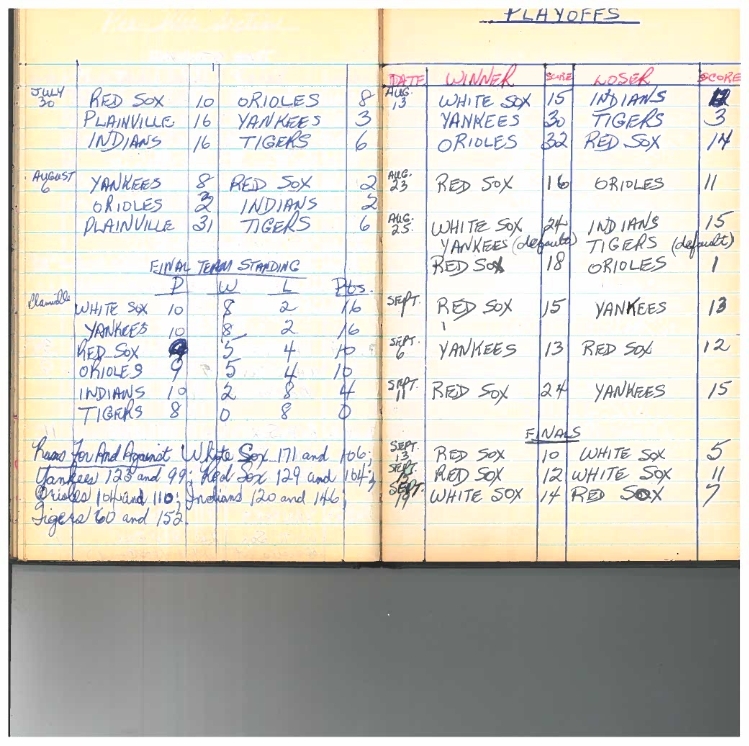 JULY 30 RED SOX 10 ORIOLES 8
PLAINVILLE 16 YANKEES 3
INDIANS 16 TIGERS 6
AUGUST 6 YANKEES 8 RED SOX 2
ORIOLES 3 INDIANS 2
PLAINVILLE 31 TIGERS 6
FINAL TEAM STANDING
P W L Pts.
Plainville WHITE SOX 10 8 2 16
YANKEES 10 8 2 16
RED SOX 9 5 4 10
ORIOLES 9 5 4 10
INDIANS 10 2 8 4
TIGERS 8 0 8 0
Runs For And Against White Sox 171 and 106;
Yankees 123 and 99; Red Sox 129 and 104;
Orioles 104 and 110; Indians 120 and 146;
Tigers 60 and 152.
PLAYOFFS
DATE WINNER SCORE LOSER SCORE
AUG. 13 WHITE SOX 15 INDIANS 12
YANKEES 30 TIGERS 3
ORIOLES 32 RED SOX 14
AUG. 23 RED SOX 16 ORIOLES 11
AUG. 25 WHITE SOX 24 INDIANS 15
YANKEES (default) TIGERS (default)
RED SOX 18 ORIOLES 1
SEPT. 1 RED SOX 15 YANKEES 13
SEPT. 6 YANKEES 13 RED SOX 12
SEPT. 11 RED SOX 24 YANKEES 15
FINALS
SEPT. 13 RED SOX 10 WHITE SOX 5
SEPT. 15 RED SOX 12 WHITE SOX 11
SEPT. 19 WHITE SOX 14 RED SOX 7